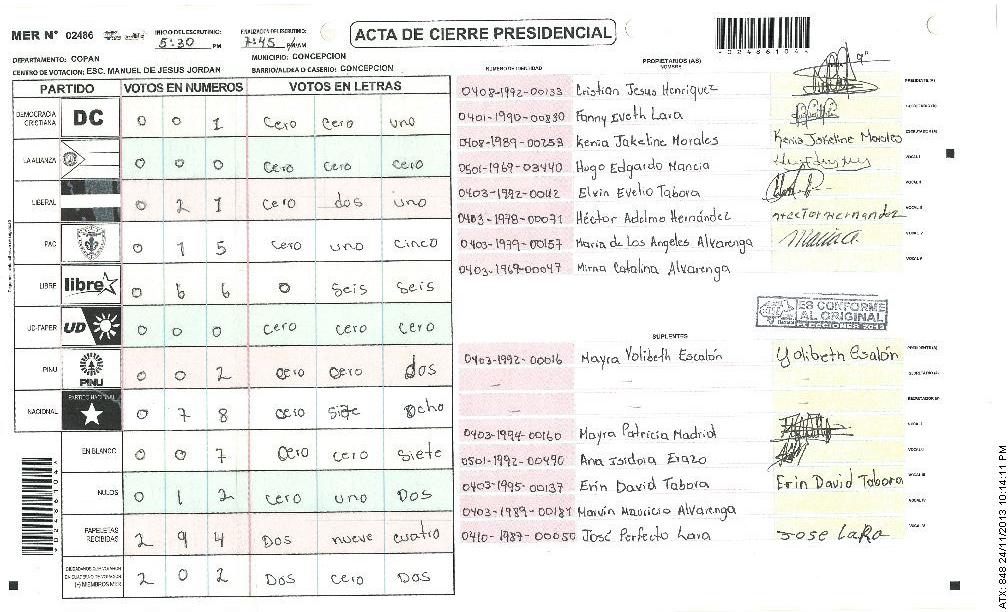 MER N° 02486
INICIO DEL ESCRUTINIO:
5:30 PM
FINALIZACION DEL ESCRUTINIO:
7:45 PM/AM
ACTA DE CIERRE PRESIDENCIAL
DEPARTAMENTO: COPAN
MUNICIPIO: CONCEPCION
CENTRO DE VOTACION: ESC. MANUEL DE JESUS JORDAN
BARRIO/ALDEA O CASERIO: CONCEPCION
PARTIDO VOTOS EN NUMEROS VOTOS EN LETRAS
DEMOCRACIA CRISTIANA DC 0 0 1 cero cero uno
LA ALIANZA 0 0 0 cero cero cero
LIBERAL 0 2 1 cero dos uno
PAC 0 1 5 cero uno cinco
LIBRE libre 0 6 6 0 seis seis
UD-FAPER UD 0 0 0 cero cero cero
PINU PINU 0 0 2 cero cero dos
NACIONAL PARTIDO NACIONAL 0 7 8 cero siete ocho
EN BLANCO 0 0 7 cero cero siete
NULOS 0 1 2 cero uno Dos
PAPELETAS RECIBIDAS 2 9 4 Dos nueve cuatro
2 0 2 Dos cero Dos
NUMERO DE IDENTIDAD
PROPIETARIOS (AS)
NOMBRE
0408-1992-00133 Cristian Jesus Henriquez
0401-1990-00830 Fanny Eveth Lara
0408-1989-00253 Kenia Jakeline Morales Kenia Jakeline Morales
0501-1969-03440 Hugo Edgardo Mancia
0403-1992-00112 Elvin Evelio Tabora
0403-1978-00071 Héctor Adelmo Hernández Hector Hernandez
0403-1979-00157 Maria de Los Angeles Alvarenga Maria a.
0403-1969-00047 Mirna Catalina Alvarenga
ES CONFORME
AL ORIGINAL
ELECCIONES 2013
SUPLENTES
0403-1992-00016 Mayra Yolibeth Escalón Yolibeth Esalón
0403-1994-00160 Mayra Patricia Madrid
0501-1992-00490 Ana Isidora Erazo
0403-1995-00137 Erin David Tabora Erin David Tabora
0403-1989-00181 Marvin Mauricio Alvarenga
0410-1987-00050 José Perfecto Lara Jose Lara
ATX: 848 24/11/2013 10:14:11 PM